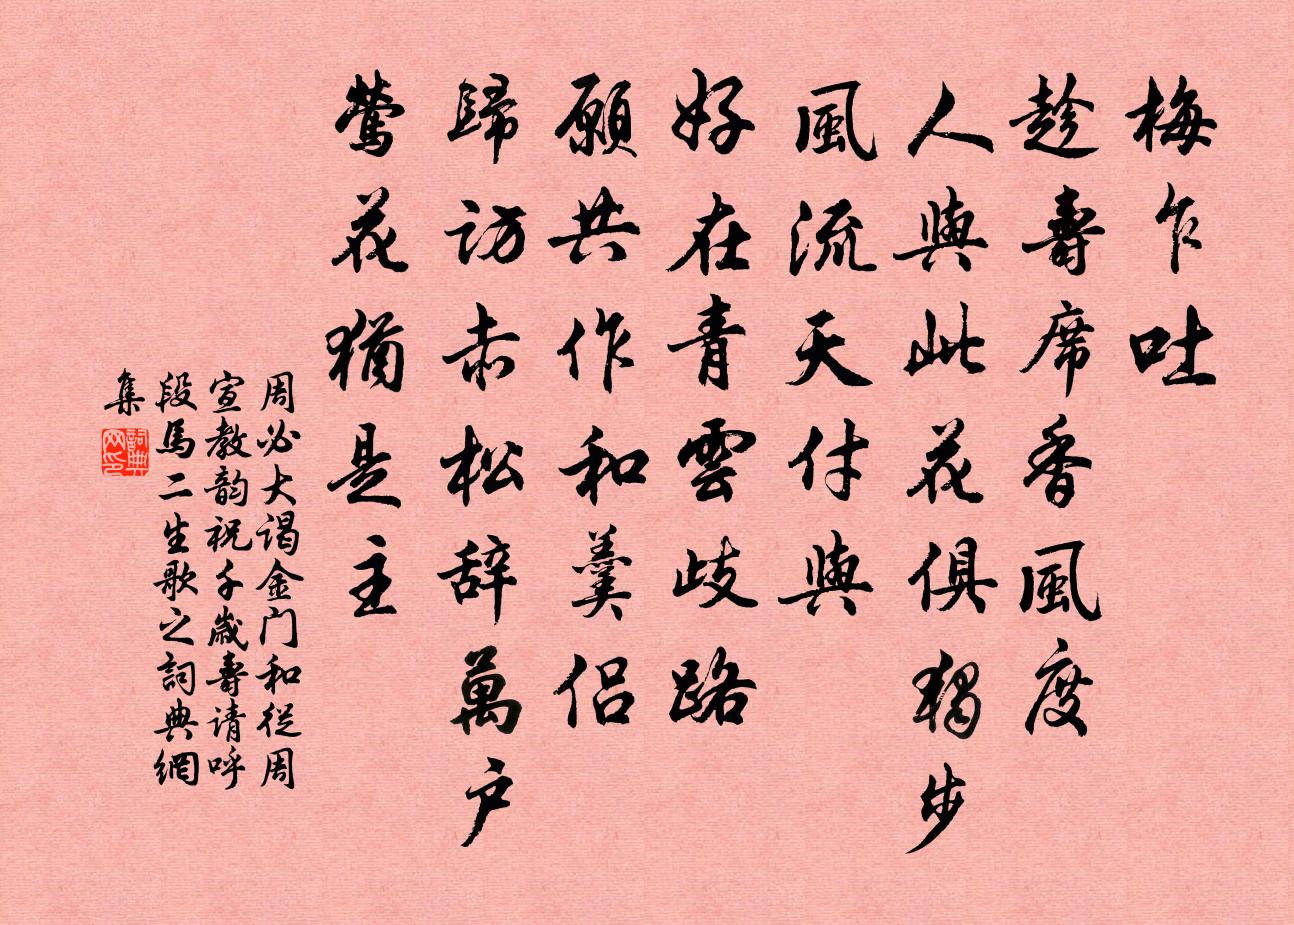 梅乍吐
趁壽席香風度
人與此花俱獨步
風流天付與
好在青雲歧路
願共作和羹侶
歸訪赤松辞萬户
鶯花猶是主
周必大谒金门和從周
宣教韵祝千歲壽请呼
段馬二生歌之詞典網
集
詞典網印